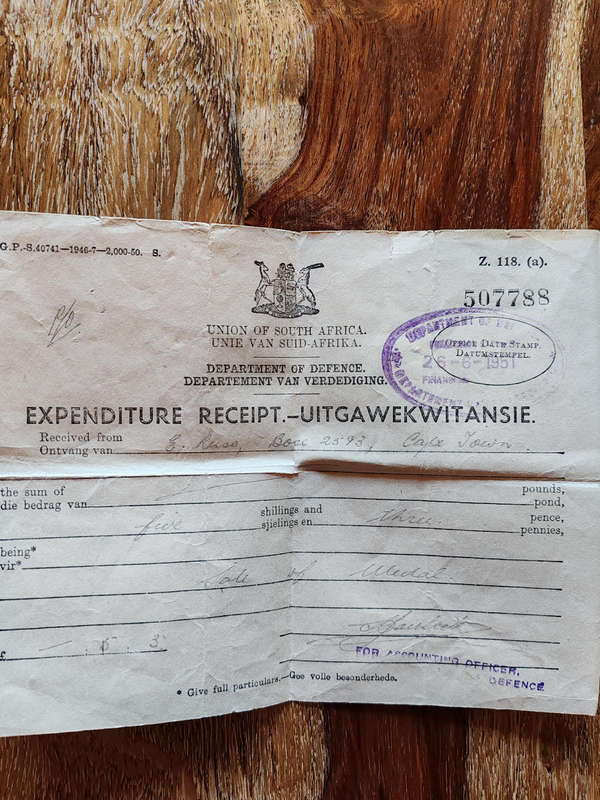 G.P.-S.40741—1946-7—2,000-50. S.
Z. 118. (a).
507788
P/D
UNION OF SOUTH AFRICA.
UNIE VAN SUID-AFRIKA.
DEPARTMENT OF DEFENCE.
DEPARTEMENT VAN VERDEDIGING.
DEPARTMENT OF
OFFICE DATE STAMP.
DATUMSTEMPEL.
26-6-1951
EXPENDITURE RECEIPT.—UITGAWEKWITANSIE.
Received from
Ontvang van E. Russ, Box 2593, Cape Town.
the sum of pounds,
die bedrag van pond,
five shillings and three pence,
sjielings en pennies,
being*
vir* Sale of Medal.
£ — . 5 . 3
FOR ACCOUNTING OFFICER,
DEFENCE
* Give full particulars.—Gee volle besonderhede.